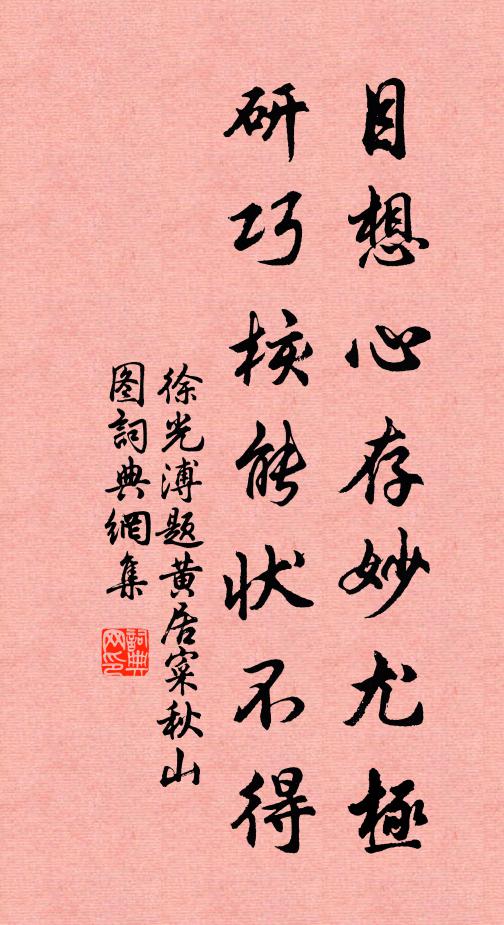 目想心存妙尤極
研巧核能状不得
徐光溥题黄居寀秋山
图詞典網集
詞典
网印